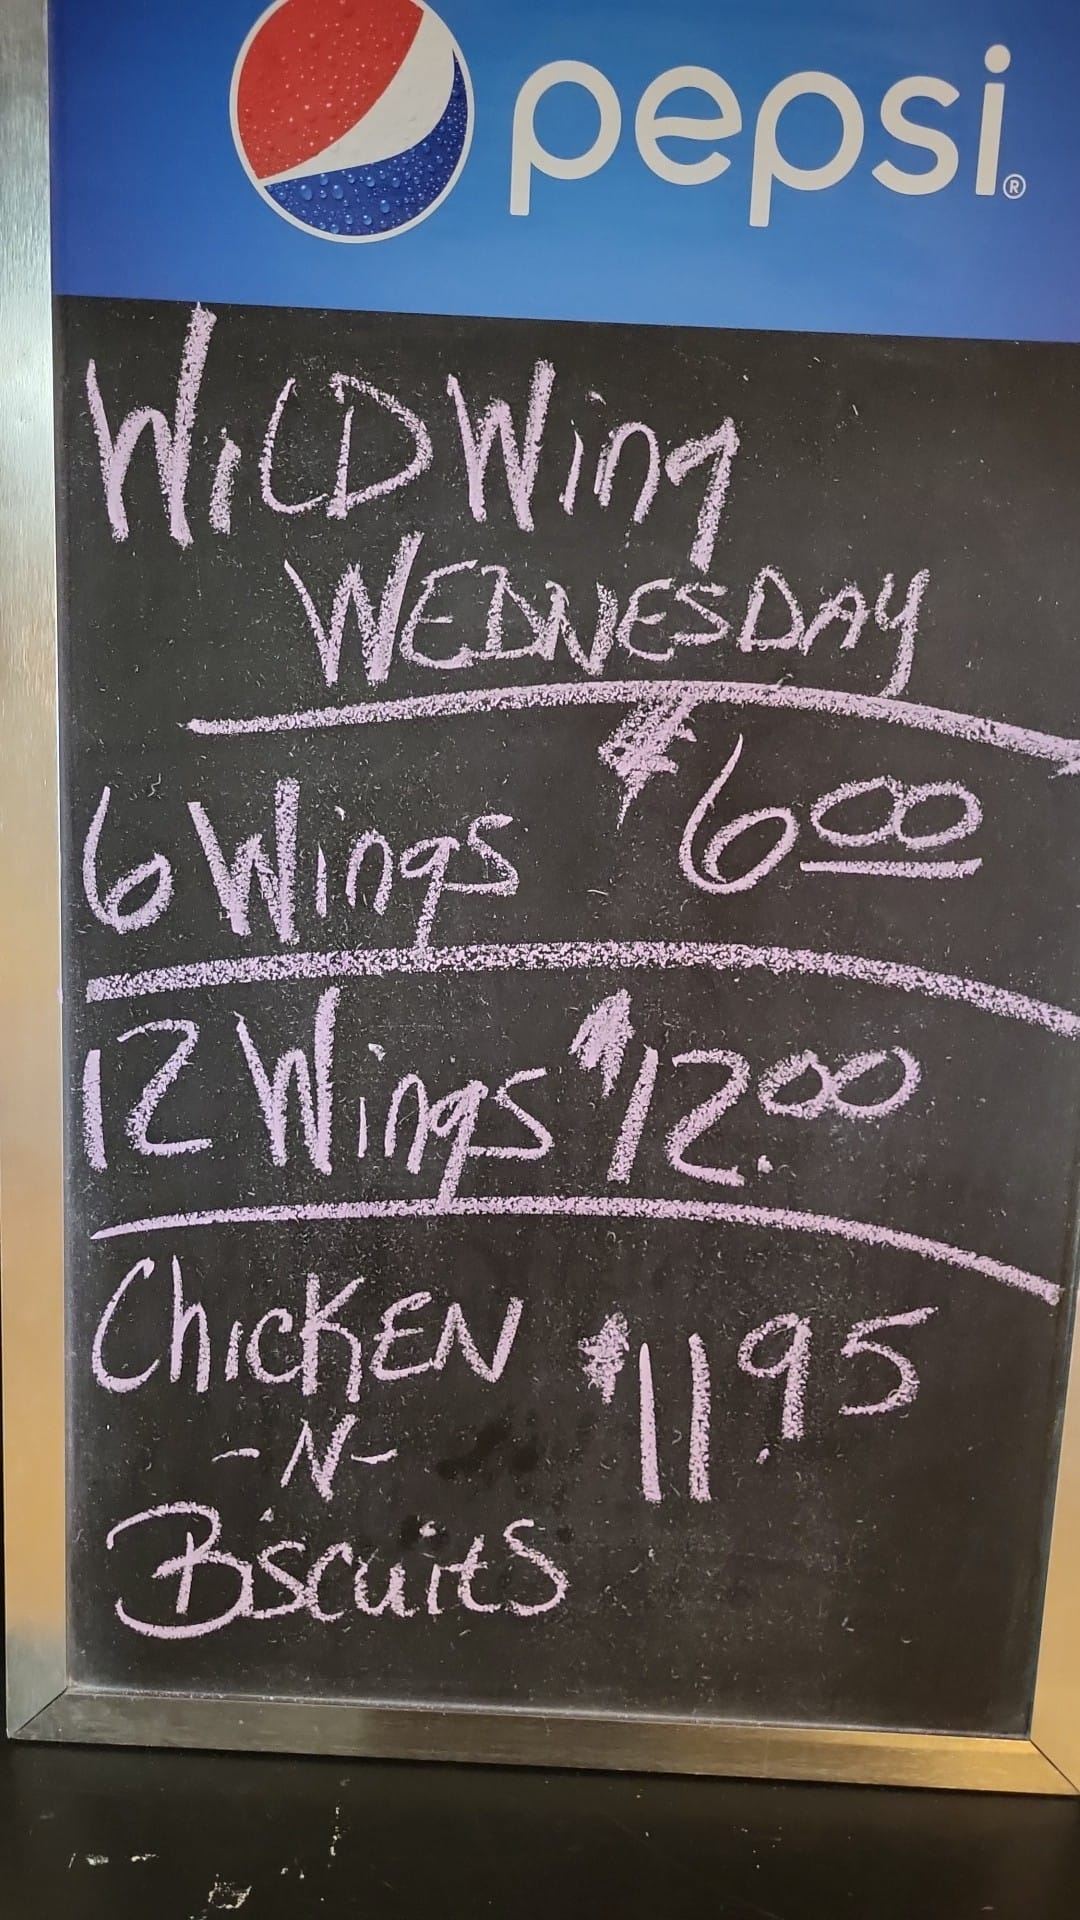 pepsi®
WiLD Wing
WEDNESDAY
6 Wings $6.00
12 Wings $12.00
ChicKEN $11.95
-N-
BiscuitS